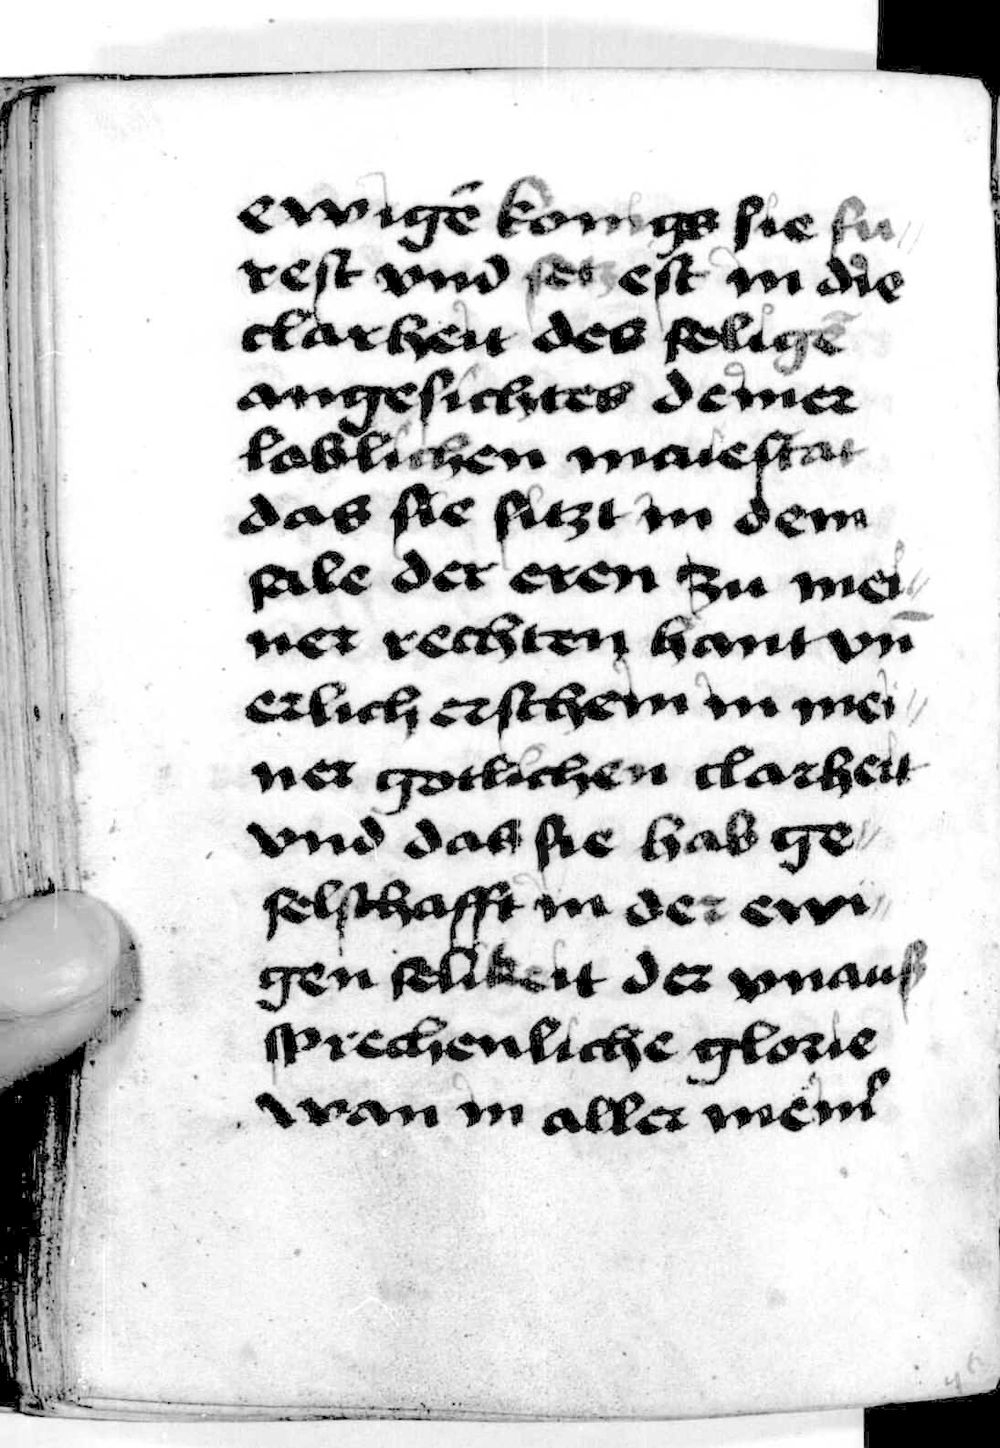 ewigē konigs sie fu⸗
rest vnd setzest in die
clarheit des seligē
angesichtes deiner
loblichen maiestat
das sie sitzt in dem
sale der eren zu mei⸗
ner rechten hant vn̄
erlich erschein in mei⸗
ner gotlichen clarheit
vnd das sie hab ge⸗
selschafft in der ewi⸗
gen selikeit der vnauß
sprechenliche glorie
wan in aller meinr